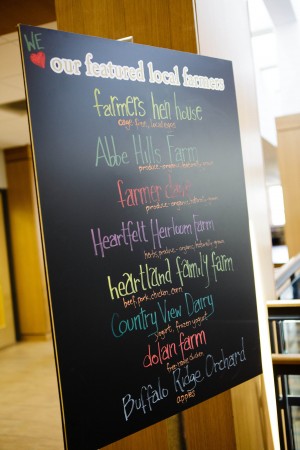 WE
our featured local farmers
farmers hen house
cage free, local eggs
Abbe Hills Farm
produce - organic, naturally grown
farmer dave
produce - organic, naturally grown
Heartfelt Heirloom Farm
herbs, produce - organic, naturally grown
heartland family farm
beef, pork, chicken, corn
Country View Dairy
yogurt, frozen yogurt
dolan farm
free range chicken
Buffalo Ridge Orchard
apples